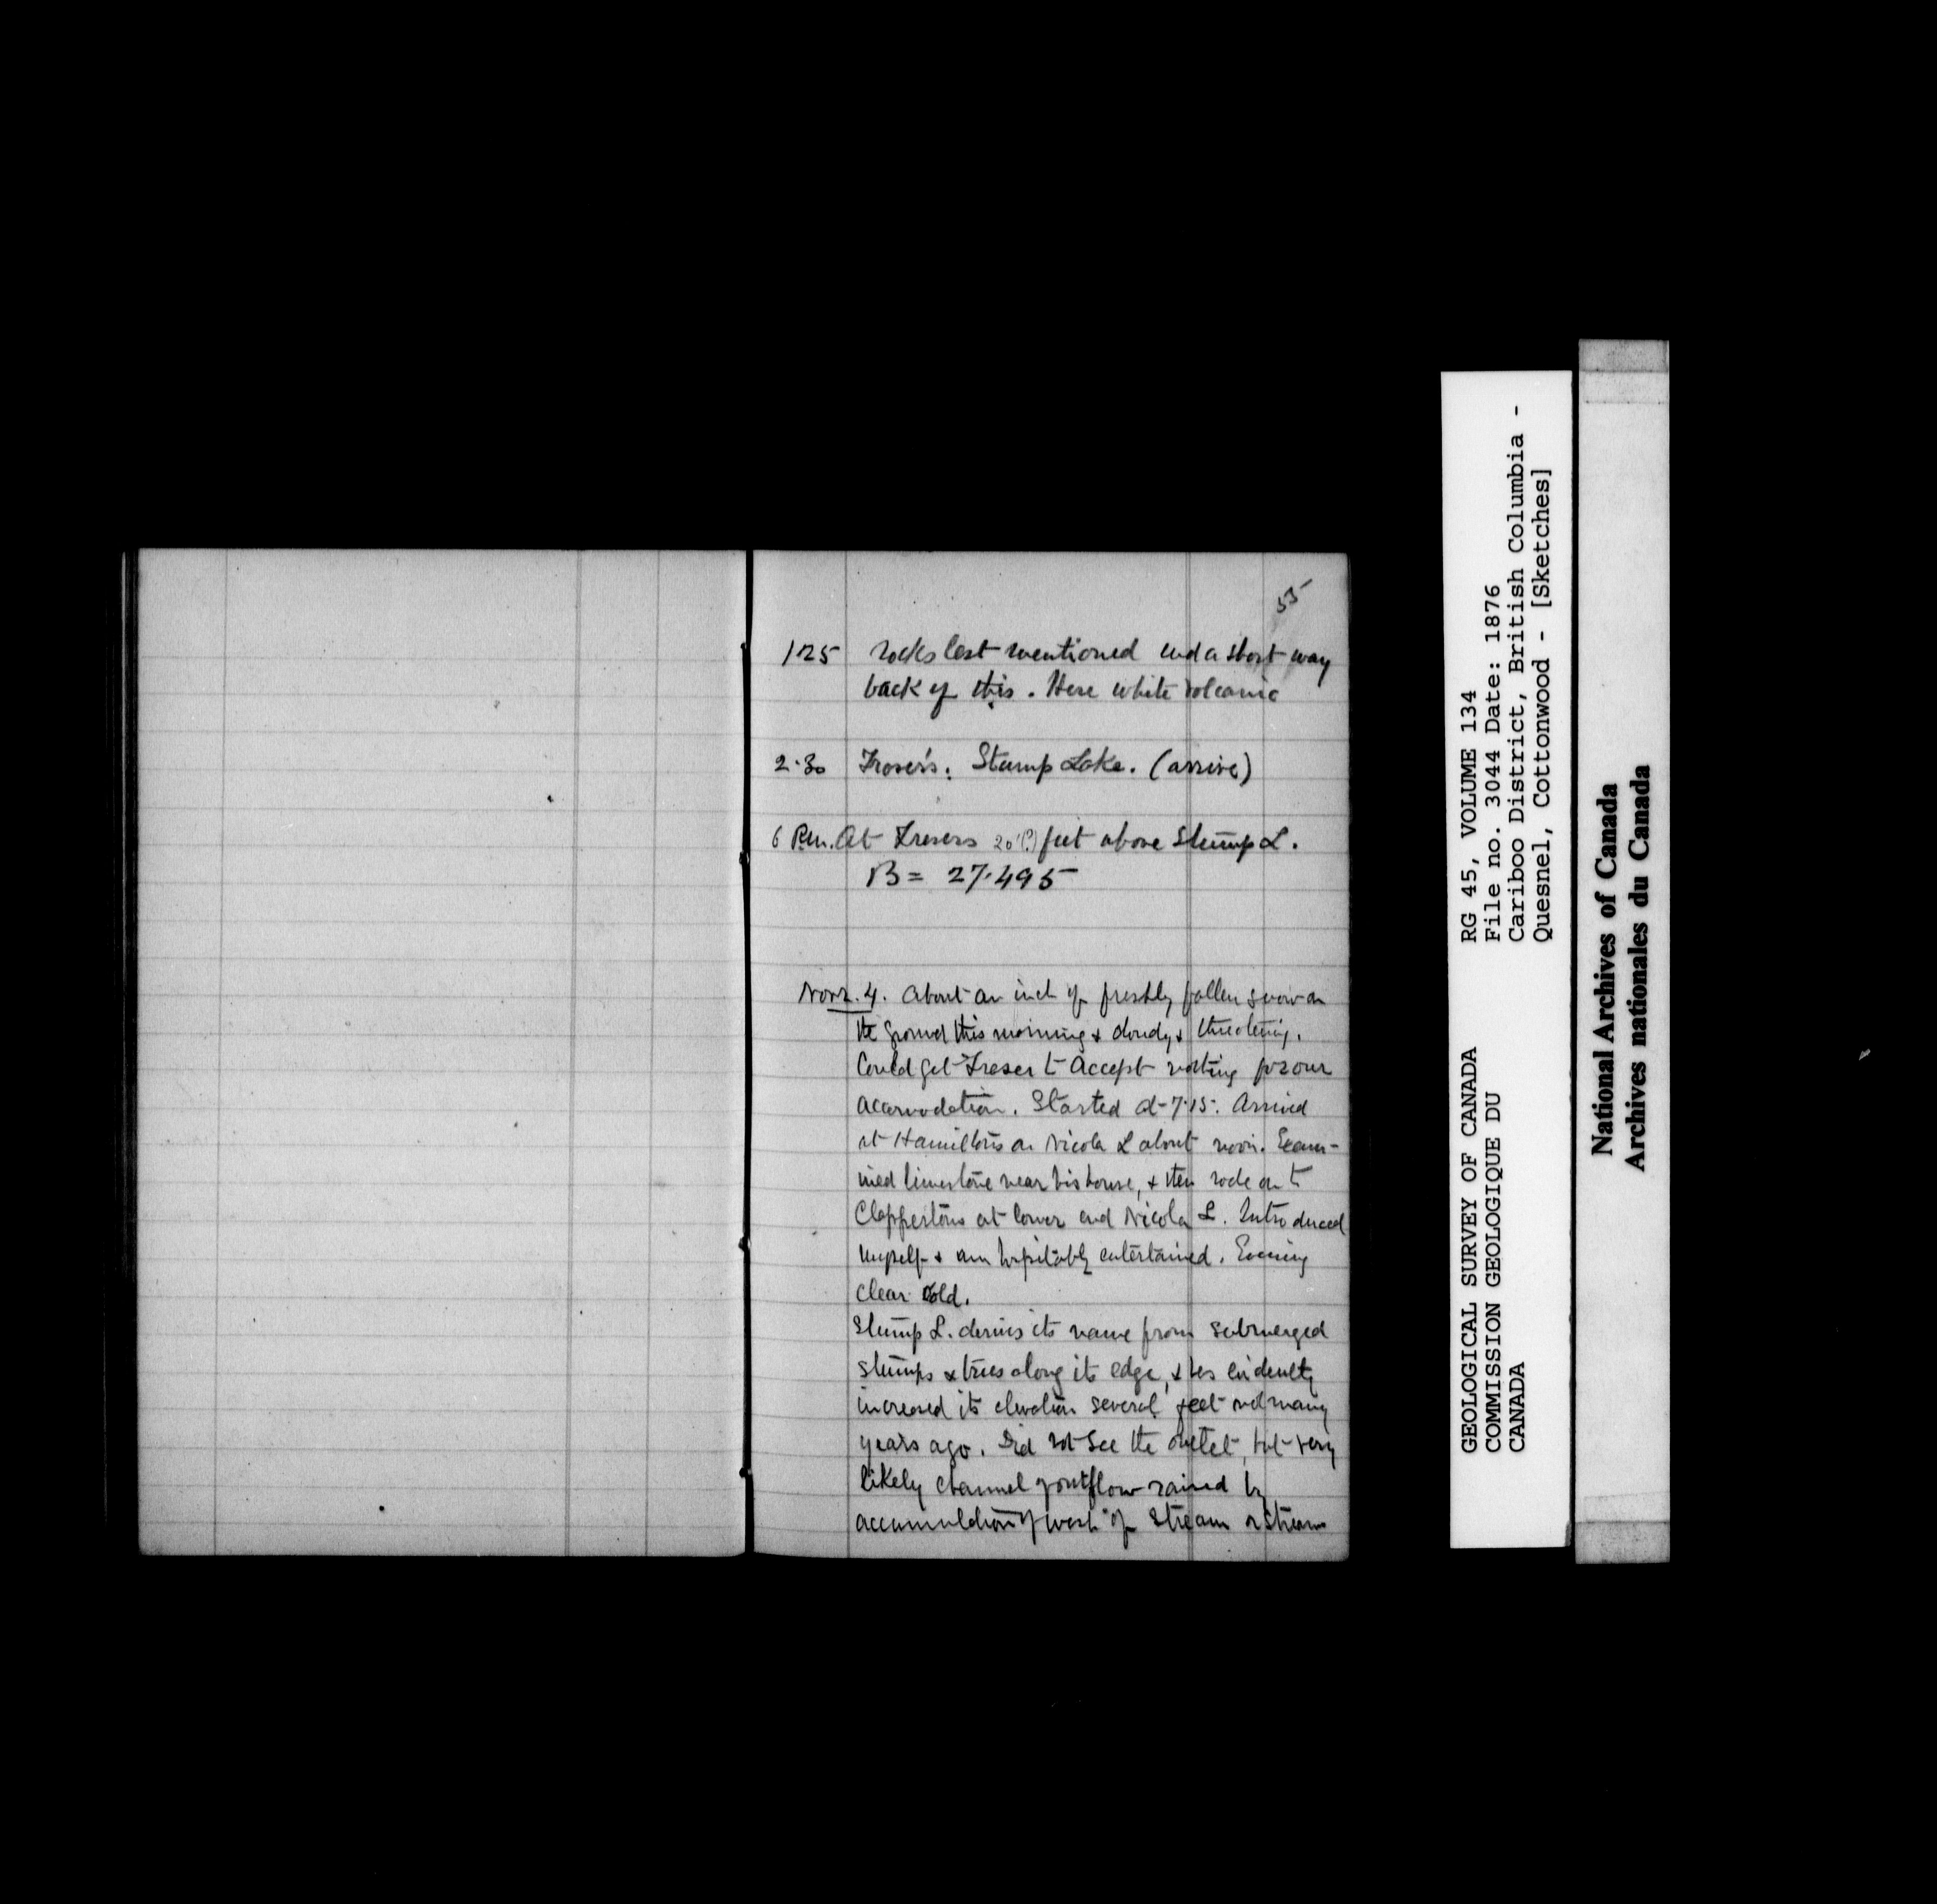 55
1·25 Rocks last mentioned end a short way
back of this. Here white volcanic
2·30 Fraser's. Stump Lake. (arrive)
6 P.M. At Frasers 20'(?) feet above Stump L.
B = 27·495
Novr. 4. About an inch of freshly fallen snow on
the ground this morning & cloudy & threatening.
Could get Fraser to accept nothing for our
accomodation. Started at 7·15. Arrived
at Hamiltons on Nicola L about noon. Exam-
ined limestone near his house, & then rode on to
Clappertons at lower end Nicola L. Introduced
myself & am hospitably entertained. Evening
clear cold.
Stump L. derives its name from submerged
stumps & trees along its edge, & has evidently
increased its elevation several feet not many
years ago. Did not see the outlet, but very
likely channel of outflow raised by
accumulation of wash of stream or streams
RG 45, VOLUME 134
File no. 3044 Date: 1876
Cariboo District, British Columbia -
Quesnel, Cottonwood - [Sketches]
GEOLOGICAL SURVEY OF CANADA
COMMISSION GEOLOGIQUE DU
CANADA
National Archives of Canada
Archives nationales du Canada